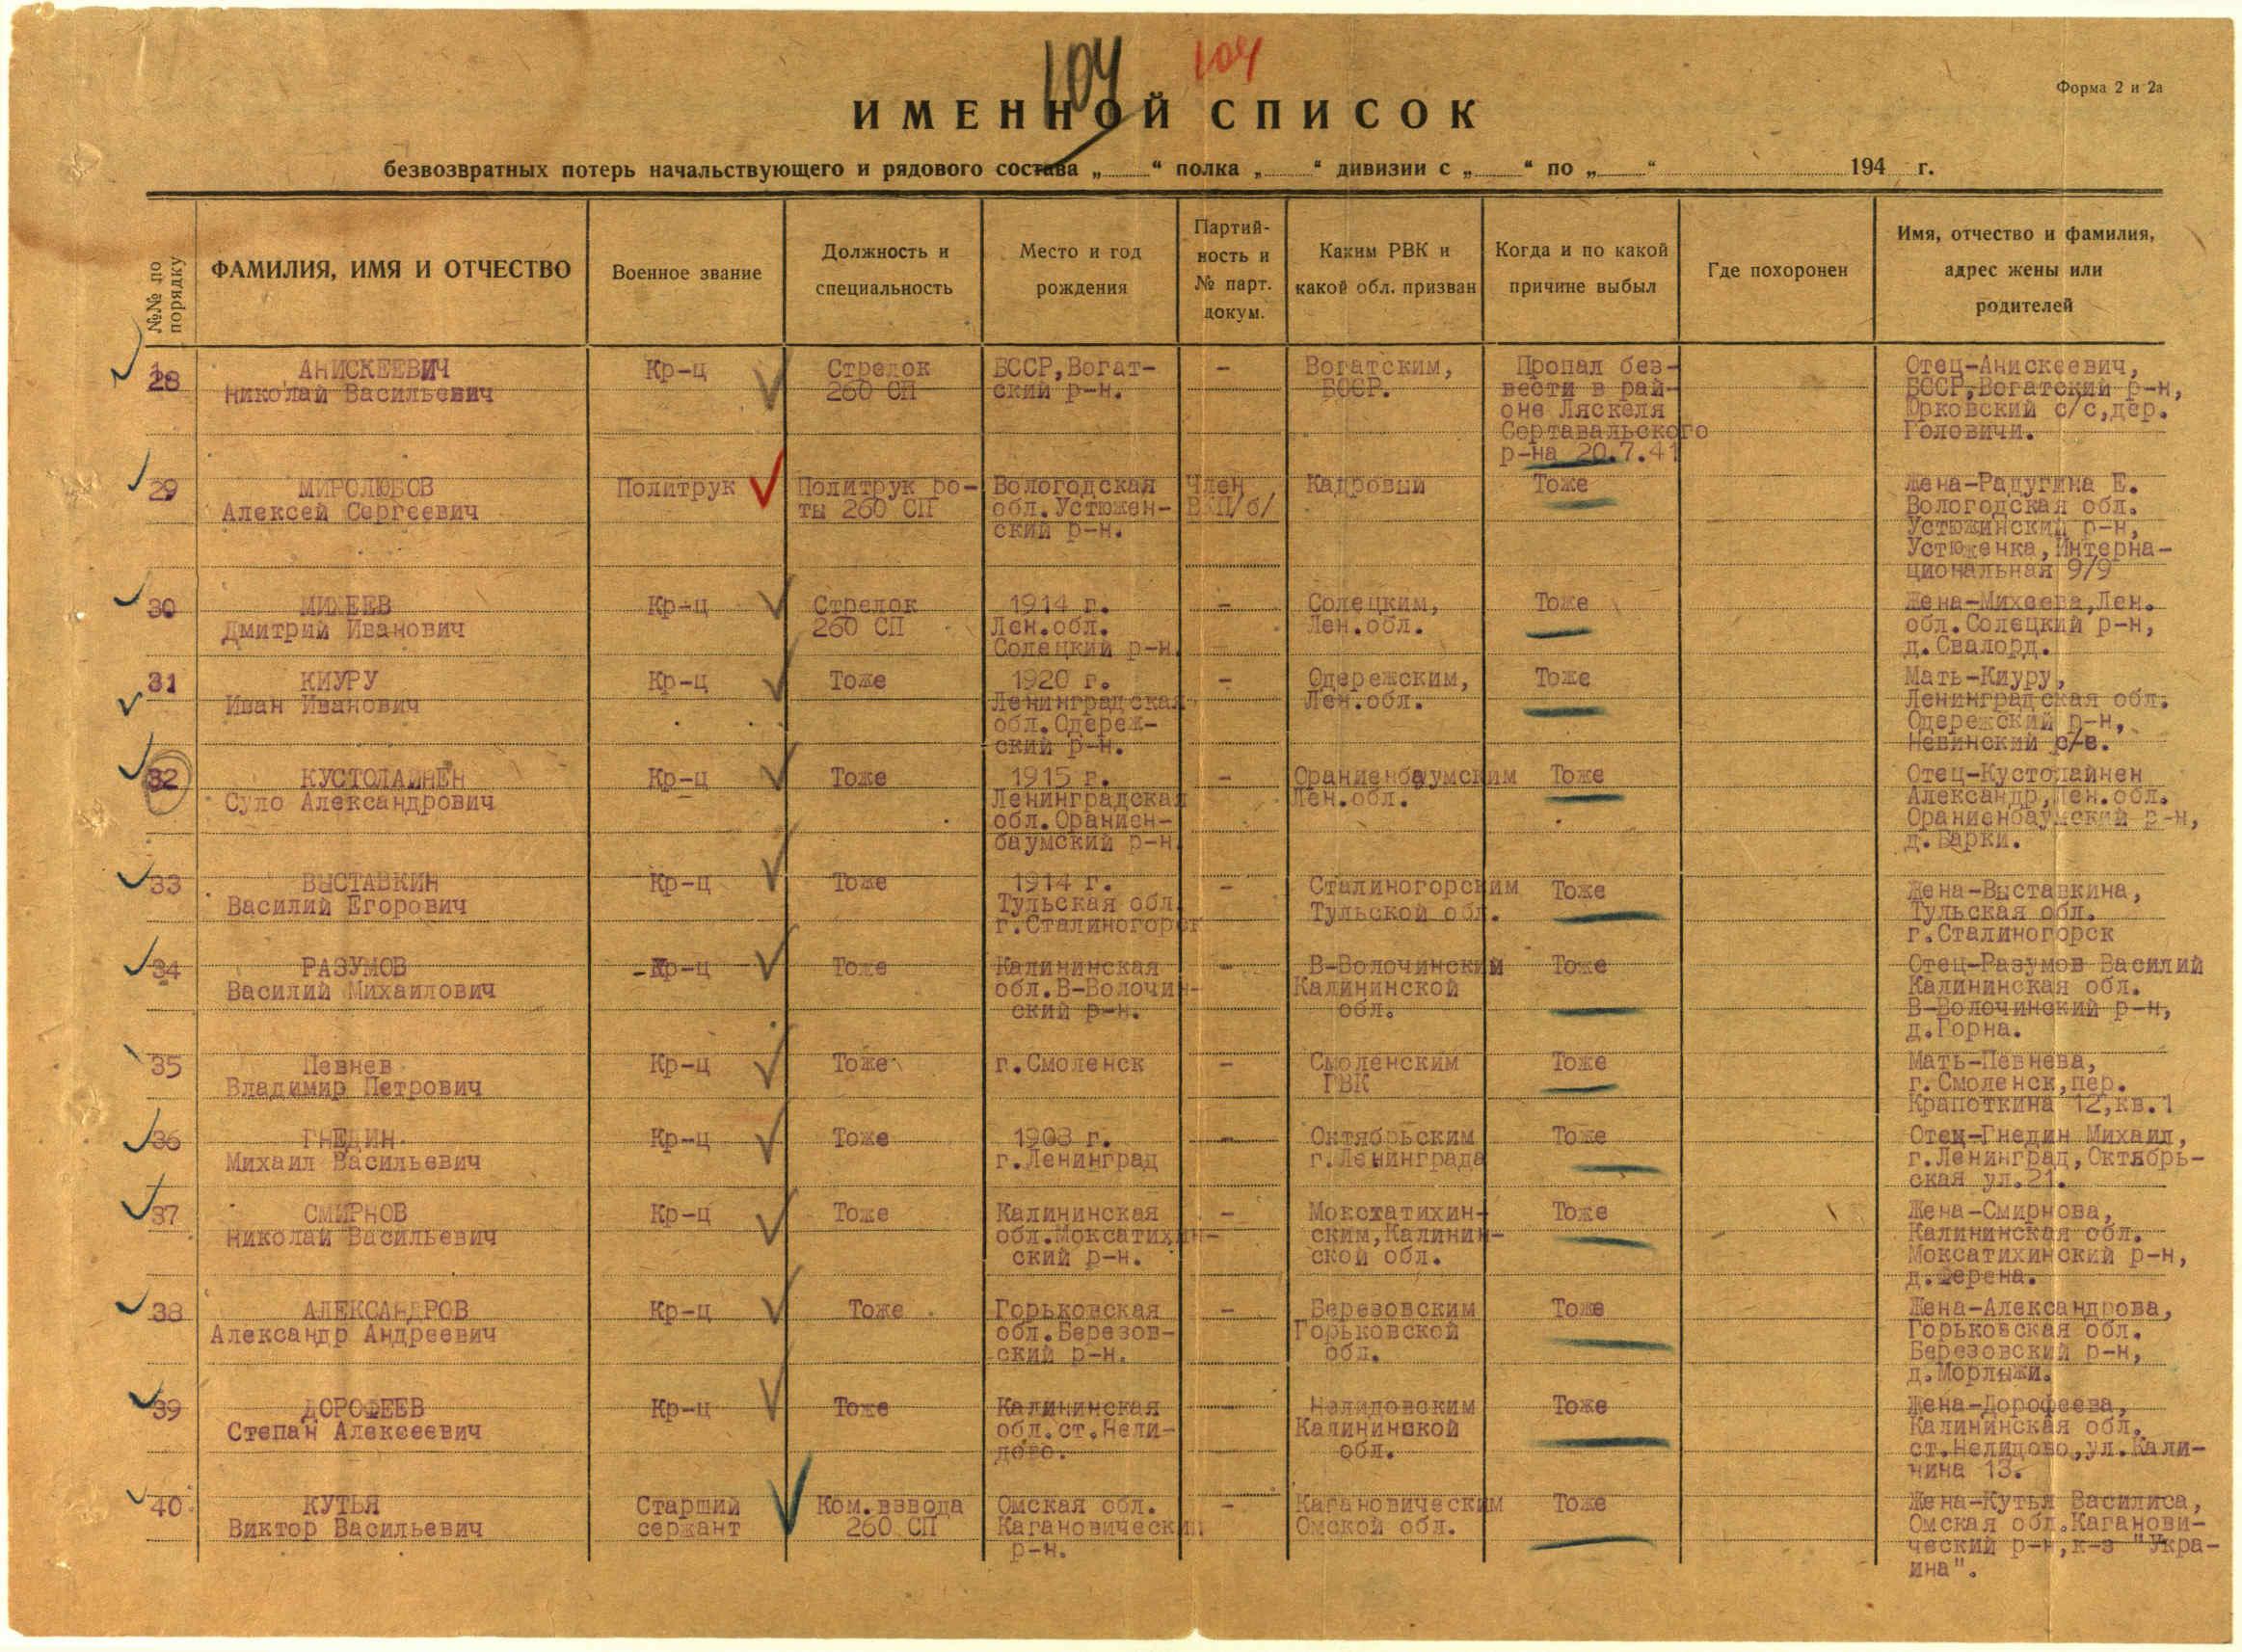 104 104
Форма 2 и 2а
ИМЕННОЙ СПИСОК
безвозвратных потерь начальствующего и рядового состава „ “ полка „ “ дивизии с „ “ по „ “ 194 г.
№№ по порядку
ФАМИЛИЯ, ИМЯ И ОТЧЕСТВО
Военное звание
Должность и
специальность
Место и год
рождения
Партий-
ность и
№ парт.
докум.
Каким РВК и
какой обл. призван
Когда и по какой
причине выбыл
Где похоронен
Имя, отчество и фамилия,
адрес жены или
родителей
28
АНИСКЕЕВИЧ
Николай Васильевич
Кр-ц
Стрелок
260 СП
БССР,Вогат-
ский р-н.
-
Вогатским,
БССР.
Пропал без-
вести в рай-
оне Ляскеля
Сортавальского
р-на 20.7.41
Отец-Анискеевич,
БССР,Вогатский р-н,
Юрковский с/с,дер.
Головичи.
29
МИРОЛЮБОВ
Алексей Сергеевич
Политрук
Политрук ро-
ты 260 СП
Вологодская
обл.Устюжен-
ский р-н.
Член
ВКП/б/
Кадровый
Тоже
Жена-Радугина Е.
Вологодская обл.
Устюжинский р-н,
Устюженка,Интерна-
циональная 9/9
30
МИХЕЕВ
Дмитрий Иванович
Кр-ц
Стрелок
260 СП
1914 г.
Лен.обл.
Солецкий р-н.
-
Солецким,
Лен.обл.
Тоже
Жена-Михеева,Лен.
обл.Солецкий р-н,
д.Свалорд.
31
КИУРУ
Иван Иванович
Кр-ц
Тоже
1920 г.
Ленинградская
обл.Одереж-
ский р-н.
-
Одережским,
Лен.обл.
Тоже
Мать-Киуру,
Ленинградская обл.
Одережский р-н,
Невинский с/с.
32
КУСТОЛАЙНЕН
Суло Александрович
Кр-ц
Тоже
1915 г.
Ленинградская
обл.Ораниен-
баумский р-н
-
Ораниенбаумским
Лен.обл.
Тоже
Отец-Кустолайнен
Александр,Лен.обл.
Ораниенбаумский р-н,
д.Барки.
33
ВЫСТАВКИН
Василий Егорович
Кр-ц
Тоже
1914 г.
Тульская обл.
г.Сталиногорск
-
Сталиногорским
Тульской обл.
Тоже
Жена-Выставкина,
Тульская обл.
г.Сталиногорск
34
РАЗУМОВ
Василий Михайлович
-Кр-ц
Тоже
Калининская
обл.В-Волочин-
ский р-н.
-
В-Волочинский
Калининской
обл.
Тоже
Отец-Разумов Василий
Калининская обл.
В-Волочинский р-н,
д.Горна.
35
Певнев
Владимир Петрович
Кр-ц
Тоже
г.Смоленск
-
Смоленским
ГВК
Тоже
Мать-Певнева,
г.Смоленск,пер.
Крапоткина 12,кв.1
36
ГНЕДИН
Михаил Васильевич
Кр-ц
Тоже
1908 г.
г.Ленинград
-
Октябрьским
г.Ленинграда
Тоже
Отец-Гнедин Михаил,
г.Ленинград,Октябрь-
ская ул.21.
37
СМИРНОВ
Николай Васильевич
Кр-ц
Тоже
Калининская
обл.Моксатихин-
ский р-н.
-
Мокстатихин-
ским,Калинин-
ской обл.
Тоже
Жена-Смирнова,
Калининская обл.
Моксатихинский р-н,
38
АЛЕКСАНДРОВ
Александр Андреевич
Кр-ц
Тоже
Горьковская
обл.Березов-
ский р-н.
-
Березовским
Горьковской
обл.
Тоже
Жена-Александрова,
Горьковская обл.
Березовский р-н,
д.Морлыжи.
39
ДОРОФЕЕВ
Степан Алексеевич
Кр-ц
Тоже
Калининская
обл.ст.Нели-
дово.
-
Нелидовским
Калининской
обл.
Тоже
Жена-Дорофеева,
Калининская обл.
ст.Нелидово,ул.Кали-
нина 13.
40
КУТЬЯ
Виктор Васильевич
Старший
сержант
Ком.взвода
260 СП
Омская обл.
Кагановический
р-н.
-
Кагановическим
Омской обл.
Тоже
Жена-Кутья Василиса,
Омская обл.Каганови-
ческий р-н,к-з "Укра-
ина".